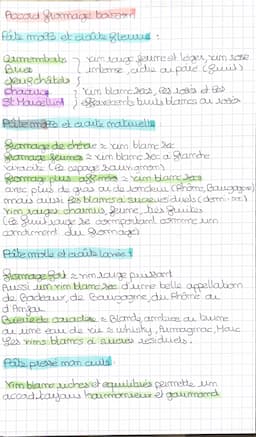 Accord fromage boisson
Pâte molle et croûte fleurie :
Camemberts } vin rouge jeune et léger, vin rosé
Bries intense, cidre ou poiré (fruité)
Neufchâtels
Chaource } vin blanc secs, les rosés et les
St Marcellin effervescents bruts blancs ou rosés
Pâte molle et croûte naturelle
Fromage de chèvre = vin blanc sec
Fromage jeunes = vin blanc sec à franche
vivacité (cépage sauvignon)
Fromage plus affinés = vin blanc secs
avec plus de gras ou de rondeur (Rhône, Bourgogne)
mais aussi les blancs à sucres résiduels (demi-sec)
vin rouges charnus, jeune, très fruités
(le fruit rouge se comportant comme un
condiment du fromage)
Pâte molle et croûte lavée :
Fromage fort = vin rouge puissant
Aussi un vin blanc sec d'une belle appellation
de Bordeaux, de Bourgogne, du Rhône ou
d'Anjou.
Bière de caractère = Blonde, ambrée ou brune
ou une eau de vie = whisky, Armagnac, Marc
Les vins blancs à sucres résiduels.
Pâte pressée non cuite
Vin blanc riches et équilibrés permette un
accord toujours harmonieux et gourmand